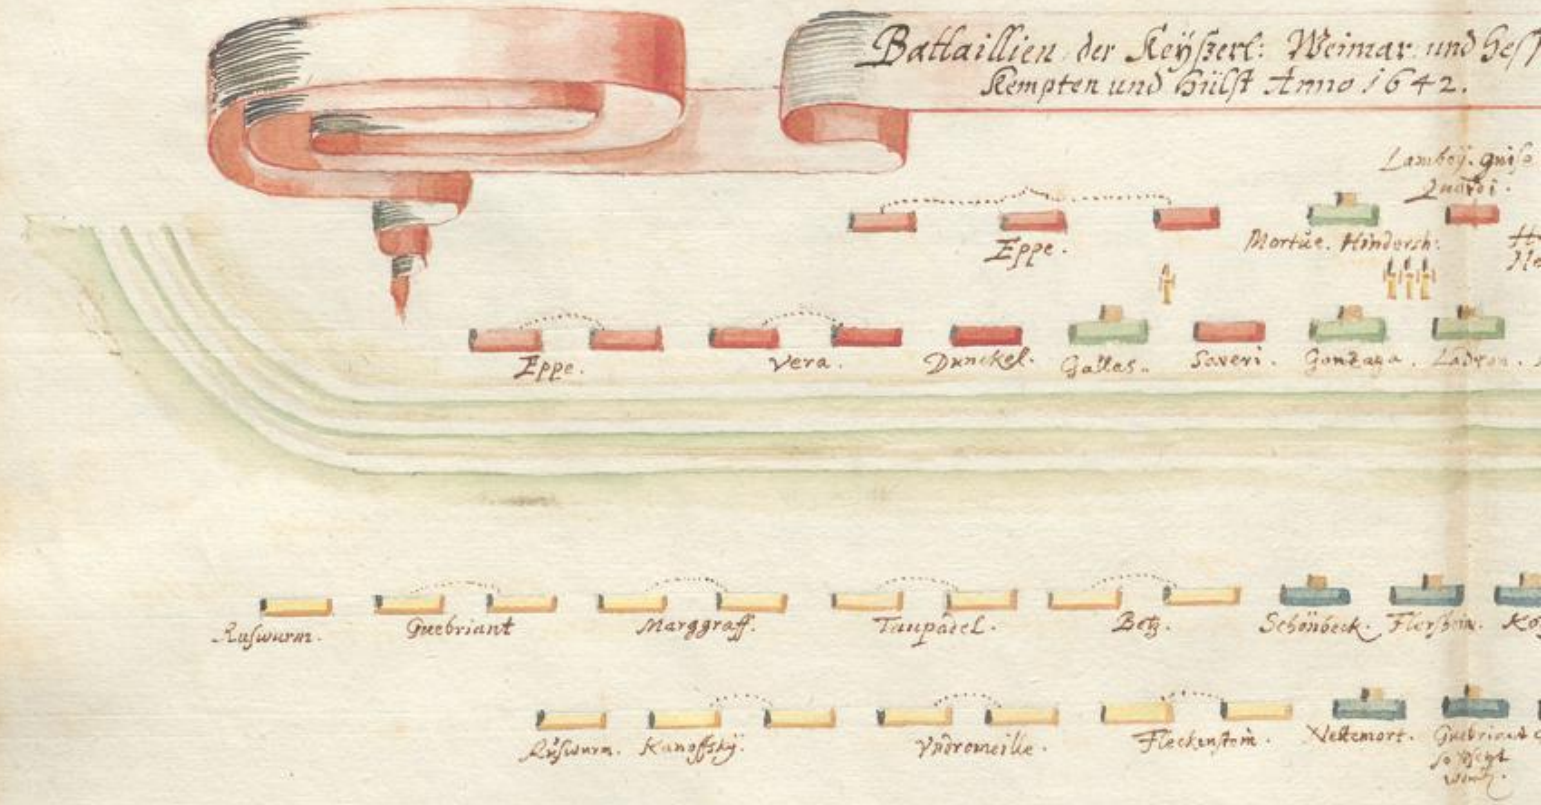 Battaillien der Keyßerl: Weimar und Heß
Kempten und Hülst Anno 1642.
Lamboy. guiso
Eppe. Mortue. Hindersh:
Eppe. Vera. Dunckel. Gallas. Saveri. Gonzaga. Ladron.
Ruswurm. Guebriant Marggraff. Taupadel. Betz. Schönbeck. Flersheim.
Rußwurm. Kanoffsky. Vndromeille. Fleckenstein. Nettemort. Guebriant